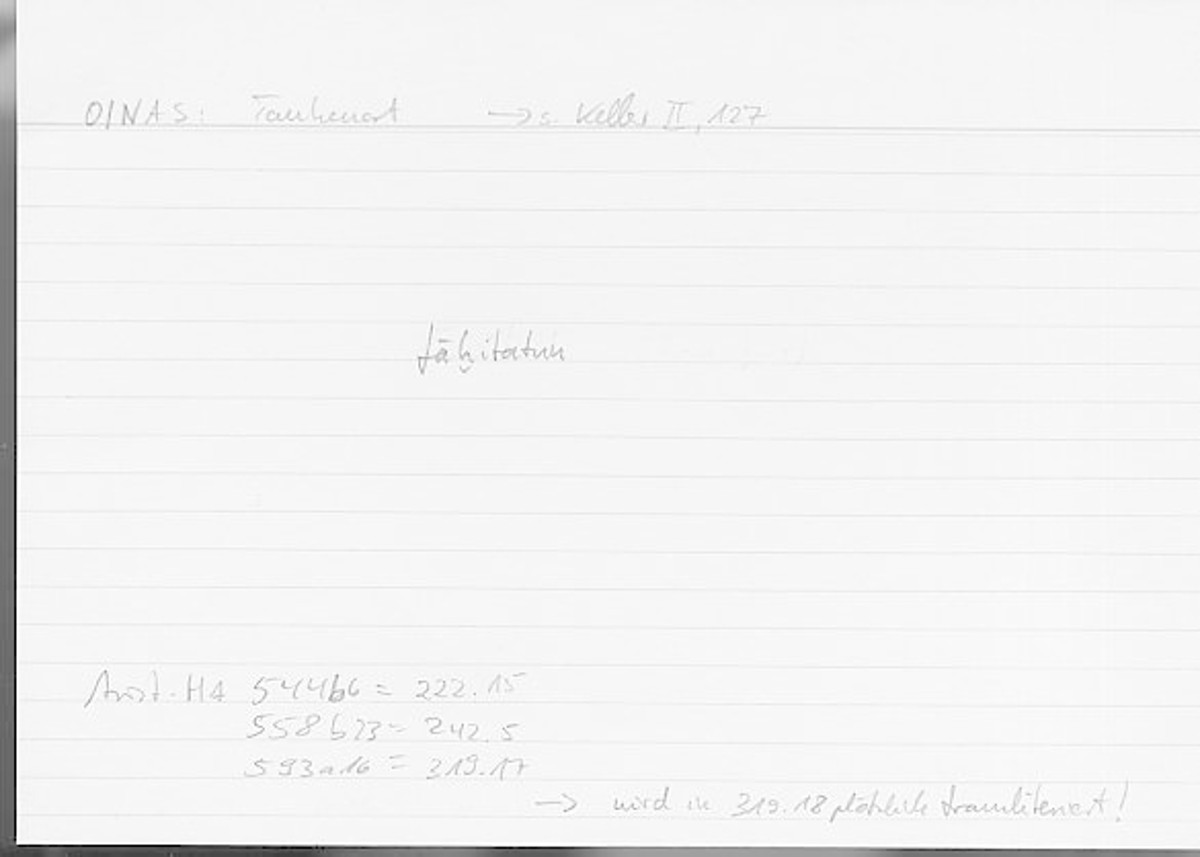 OINAS: Taubenart → s. Keller II, 127
fāḫitatun
Arist. HA 544b6 = 222.15
558b23 = 242.5
593a16 = 319.17
→ wird in 319.18 plötzlich transliteriert!